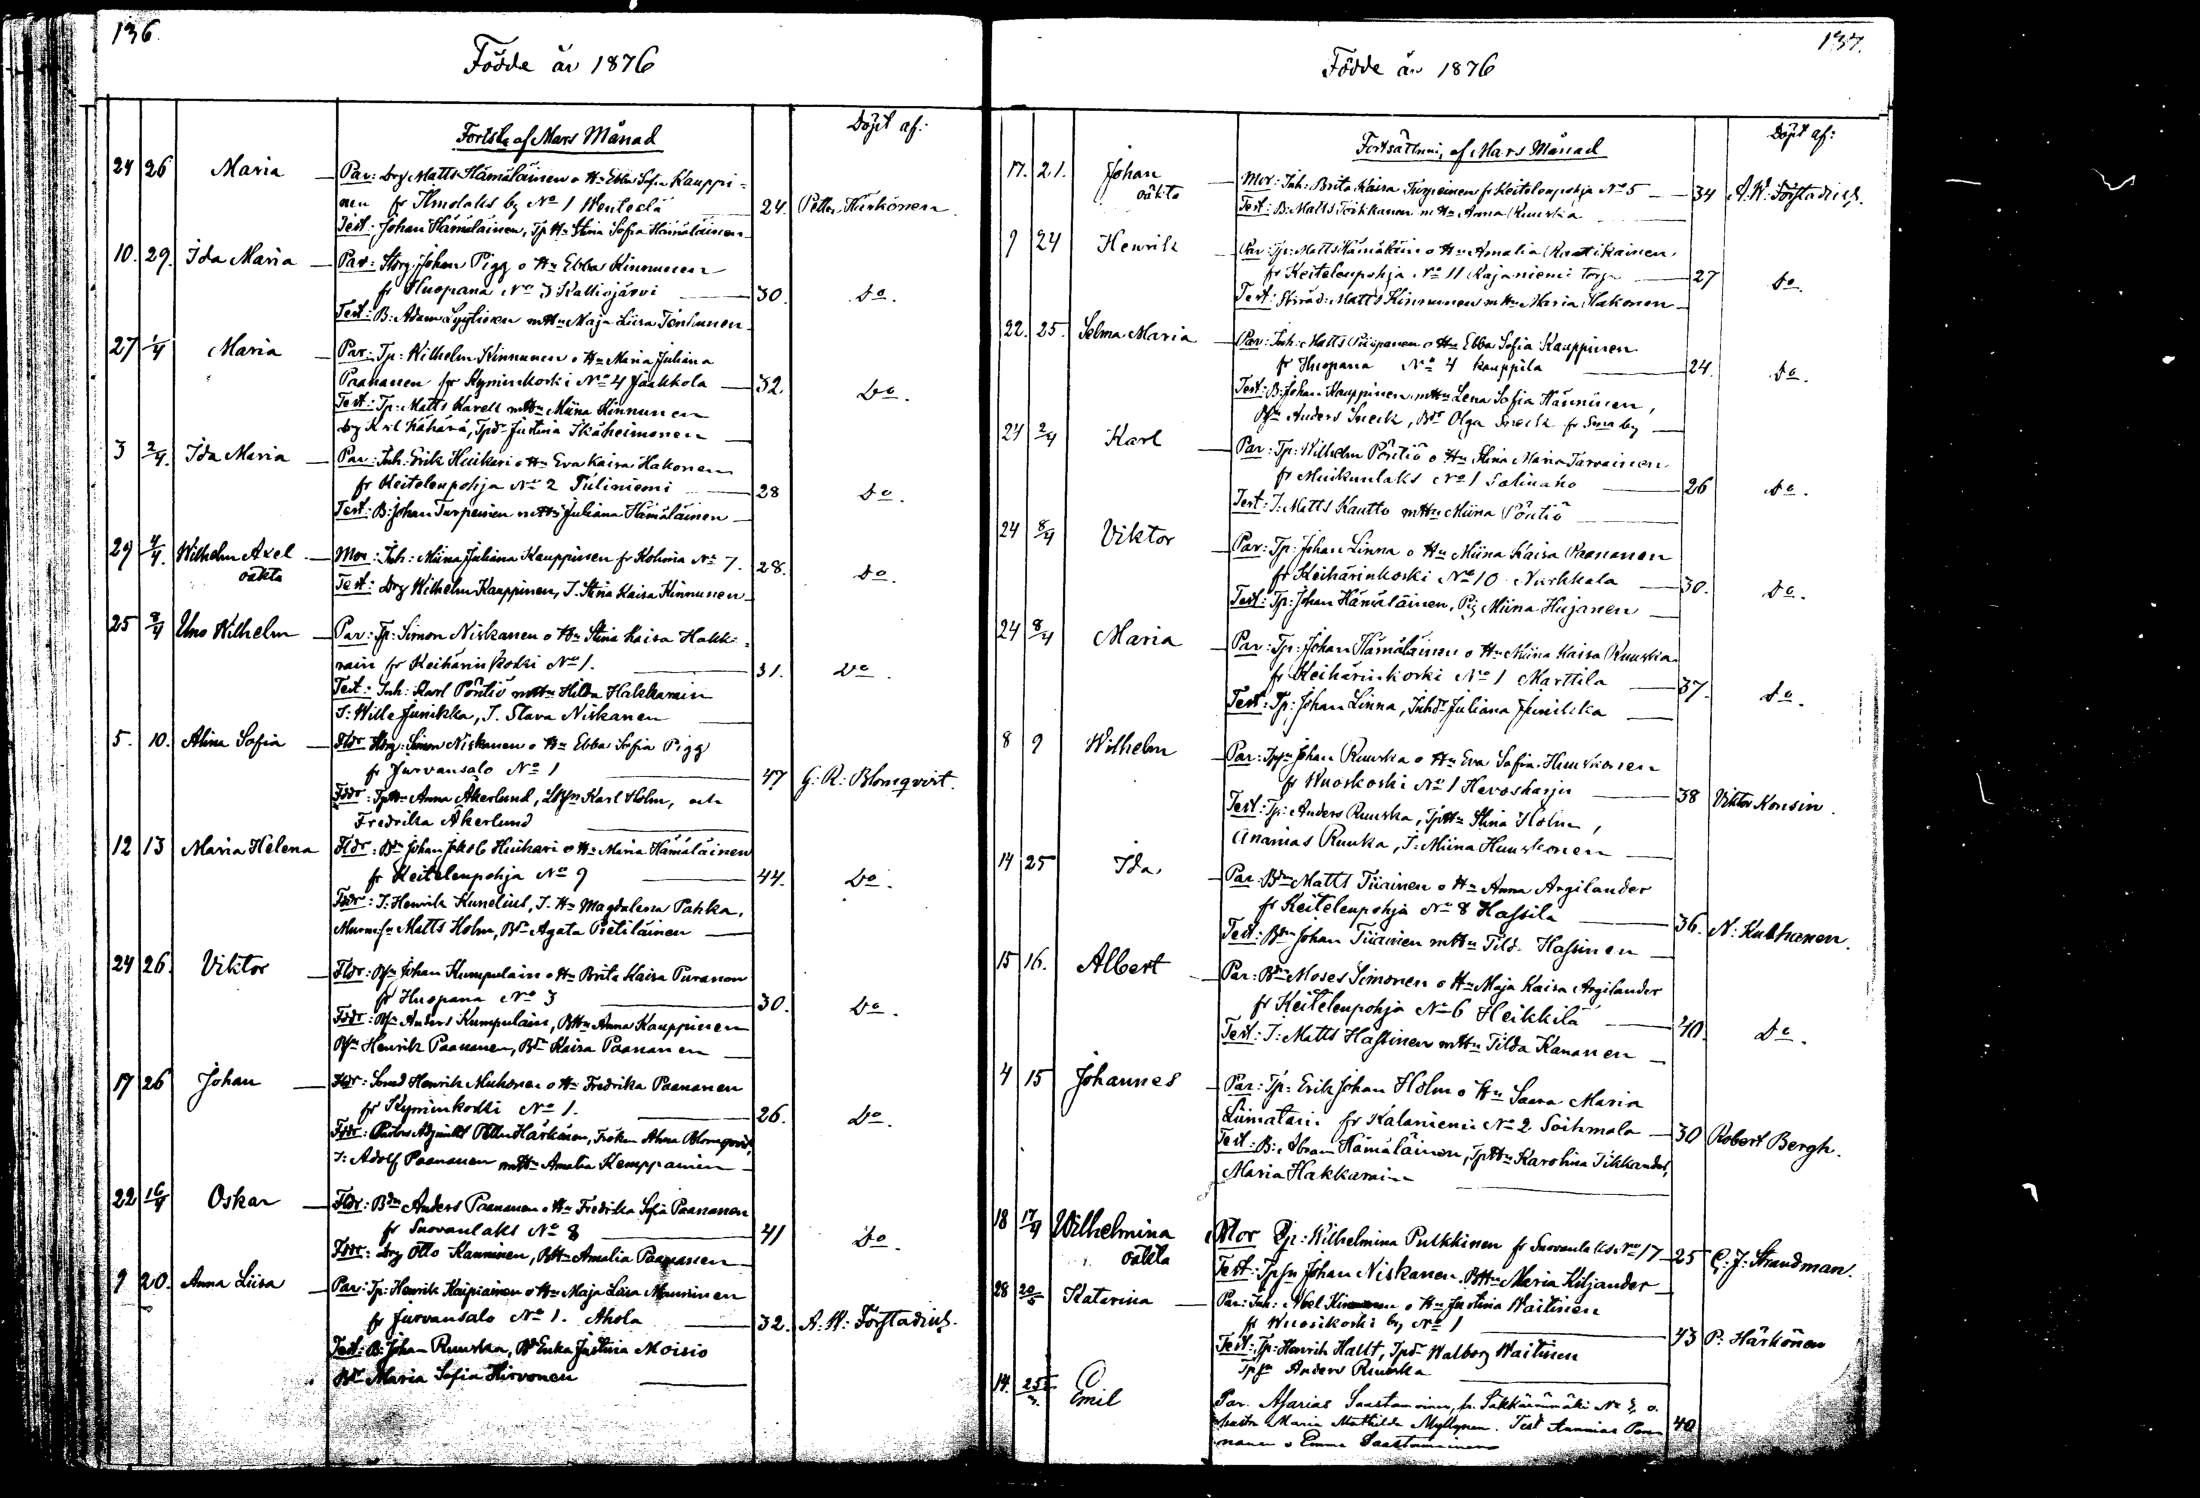 136
Födde år 1876
Forts. af Mars Månad
Döpt af:
24 26 Maria — Par: Drg Matts Hämäläinen o Hu Ebba Sofia Kauppi=
nen fr Ilmolaks by No 1 Wentelä 24. Petter Härkönen.
Test: Johan Hämäläinen, Tp Hu Stina Sofia Hämäläinen
10. 29. Ida Maria — Par: Storg. Johan Pigg o Hu Ebba Kinnunen
fr Huopana No 3 Kalliojärvi 30. Do.
Test: B: Adam Lyytinen m Hu Maja Liisa Tenhunen
27 1/4 Maria — Par: Tp: Wilhelm Kinnunen o Hu Maria Juliana
Paananen fr Kyminkoski No 4 Jaakkola — 32. Do.
Test: Tp: Matts Kavell m Hu Miina Kinnunen
drg Karl Kähärä, Tpdr Justina Ikäheimonen
3 2/4. Ida Maria — Par: Inh. Erik Hiekari o Hu Eva Kaisa Hakonen
fr Keitelenpohja No 2 Tiiliniemi 28 Do.
Test: B: Johan Turpeinen m Hu Juliana Hämäläinen
29 4/4. Wilhelm Axel — Mor: Inh: Miina Juliana Kauppinen fr Kolima No 7. 28. Do.
oäkta Test: Drg Wilhelm Kauppinen, I. Stina Kaisa Kinnunen
25 8/4 Uno Wilhelm — Par: Tp: Simon Niskanen o Hu Stina Kaisa Hakka=
rain fr Keihärinkoski No 1. 31. Do
Test: Inh: Karl Pöntiö m Hu Hilda Hakkarain
I: Wille Junikka, I. Stava Niskanen
5. 10. Alina Sofia — Fldr: Storg: Simon Niskanen o Hu Ebba Sofia Pigg
fr Jurvansalo No 1 47 G. R. Blomqvist.
Fddr: Tp Hu Anna Åkerlund, Karl Holm, och
Fredrika Åkerlund
12 13 Maria Helena Fldr: Bn Johan Jakob Hiekari o Hu Maria Hämäläinen
fr Keitelenpohja No 9 44. Do.
Fddr: I: Henrik Kunelius, I. Hu Magdalena Pahka,
Matts Holm, Bdr Agata Pietiläinen
24 26. Viktor — Fldr: Bn Johan Kumpulain o Hu Brita Kaisa Puranen
fr Huopana No 3 30. Do.
Fddr: Bn Anders Kumpulain, BHu Anna Kauppinen
Bn Henrik Paananen, Bdr Kaisa Paananen
17 26 Johan — Fldr: Henrik Niskanen o Hu Fredrika Paananen
fr Kyminkoski No 1. 26. Do.
Fddr: Pastors Adjunkt Petter Härkönen, Fröken Alma Blomqvist,
I: Adolf Paananen m Hu Amalia Kemppainen
22 16/4 Oskar — Fldr: Bdn Anders Paananen o Hu Fredrika Sofia Paananen
fr Suovanlaks No 8 41 Do.
Fddr: Drg Otto Kauninen, BHu Amalia Paananen
9 20. Anna Liisa — Par: Tp: Henrik Kaipiainen o Hu Maja Liisa Manninen
fr Jurvansalo No 1. Ahola 32. A. W. Forstadius.
Test: B: Johan Ruuska, Enka Justina Moisio
Bdr Maria Sofia Hirvonen
137.
Födde år 1876
Fortsättning af Mars Månad
Döpt af:
17. 21. Johan — Mor: Inh: Brita Kaisa Turpeinen fr Keitelenpohja No 5 — 34 A. W. Forstadius.
oäkta Test: B. Matts Toikkanen m Hu Anna Ruuska
9 24 Henrik Par: Tp: Matts Hämäläin o Hu Amalia Rautikainen
fr Keitelenpohja No 11 Kajaniemi torp 27 Do.
Test: Matts Kinnunen m Hu Maria Hakonen
22. 25. Selma Maria — Par: Inh: Matts Piispanen o Hu Ebba Sofia Kauppinen
fr Huopana No 4 Kauppila 24. Do.
Test: B: Johan Kauppinen m Hu Lena Sofia Hänninen,
Anders Sneck, Bdr Olga Sneck fr Sma by
24 2/4 Karl — Par: Tp: Wilhelm Pöntiö o Hu Stina Maria Tarvainen
fr Muikunlaks No 1 Salinaho 26 Do.
Test: I: Matts Kautto m Hu Miina Pöntiö
24 8/4 Viktor — Par: Tp: Johan Linna o Hu Miina Kaisa Paananen
fr Keihärinkoski No 10 Nurkkala 30. Do.
Test: Tp: Johan Hämäläinen, Pig Miina Hujanen
24 8/4 Maria — Par: Tp: Johan Hämäläinen o Hu Miina Kaisa Ruuska
fr Keihärinkoski No 1 Marttila 37. Do.
Test: Tp: Johan Linna, Inhdr Juliana Junikka
8 9 Wilhelm — Par: Tpsn Johan Ruuska o Hu Eva Sofia Huuskonen
fr Wuoskoski No 1 Hevosharju 38 Viktor Konsin.
Test: Tp: Anders Ruuska, TpHu Stina Holm,
Ananias Ruuska, I: Miina Huuskonen
14 25 Ida — Par. Bdn Matts Tiiainen o Hu Anna Argilander
fr Keitelenpohja No 8 Hassila 36. N: Kukkanen.
Test: Bdn Johan Tiiainen m Hu Tild. Hassinen
15 16. Albert — Par: Bdn Moses Simonen o Hu Maja Kaisa Argilander
fr Keitelenpohja No 6 Heikkilä 40. Do.
Test: I: Matts Hassinen m Hu Tilda Kananen
4 15 Johannes — Par: Tp: Erik Johan Holm o Hu Saara Maria
Liimatain fr Kalaniemi No 2 Soihmala — 30 Robert Bergh.
Test: B: Abram Hämäläinen, TpHu Karolina Tikkander,
Maria Hakkarain
18 17/4 Wilhelmina Mor Pig: Wilhelmina Pulkkinen fr Suovanlaks No 17 — 25 C. J. Strandman.
oäkta Test: Tpsn Johan Niskanen. BHu Maria Kiljander
28 20/5 Katarina — Par: Inh: Abel Kinnunen o Hu Justina Waitinen
fr Wuosikoski by No 1 43 P. Härkönen
Test: Tp: Henrik Hallt, Tpdr Walborg Waitinen
Tpsn Anders Ruuska
14. 25 Emil Par. Asarias Saastamoinen, fr Säkkärämäki No 3, o.
hustr Maria Mathilda Myllynen. Test Ananias Paa 40
nanen o Emma Saastamoinen